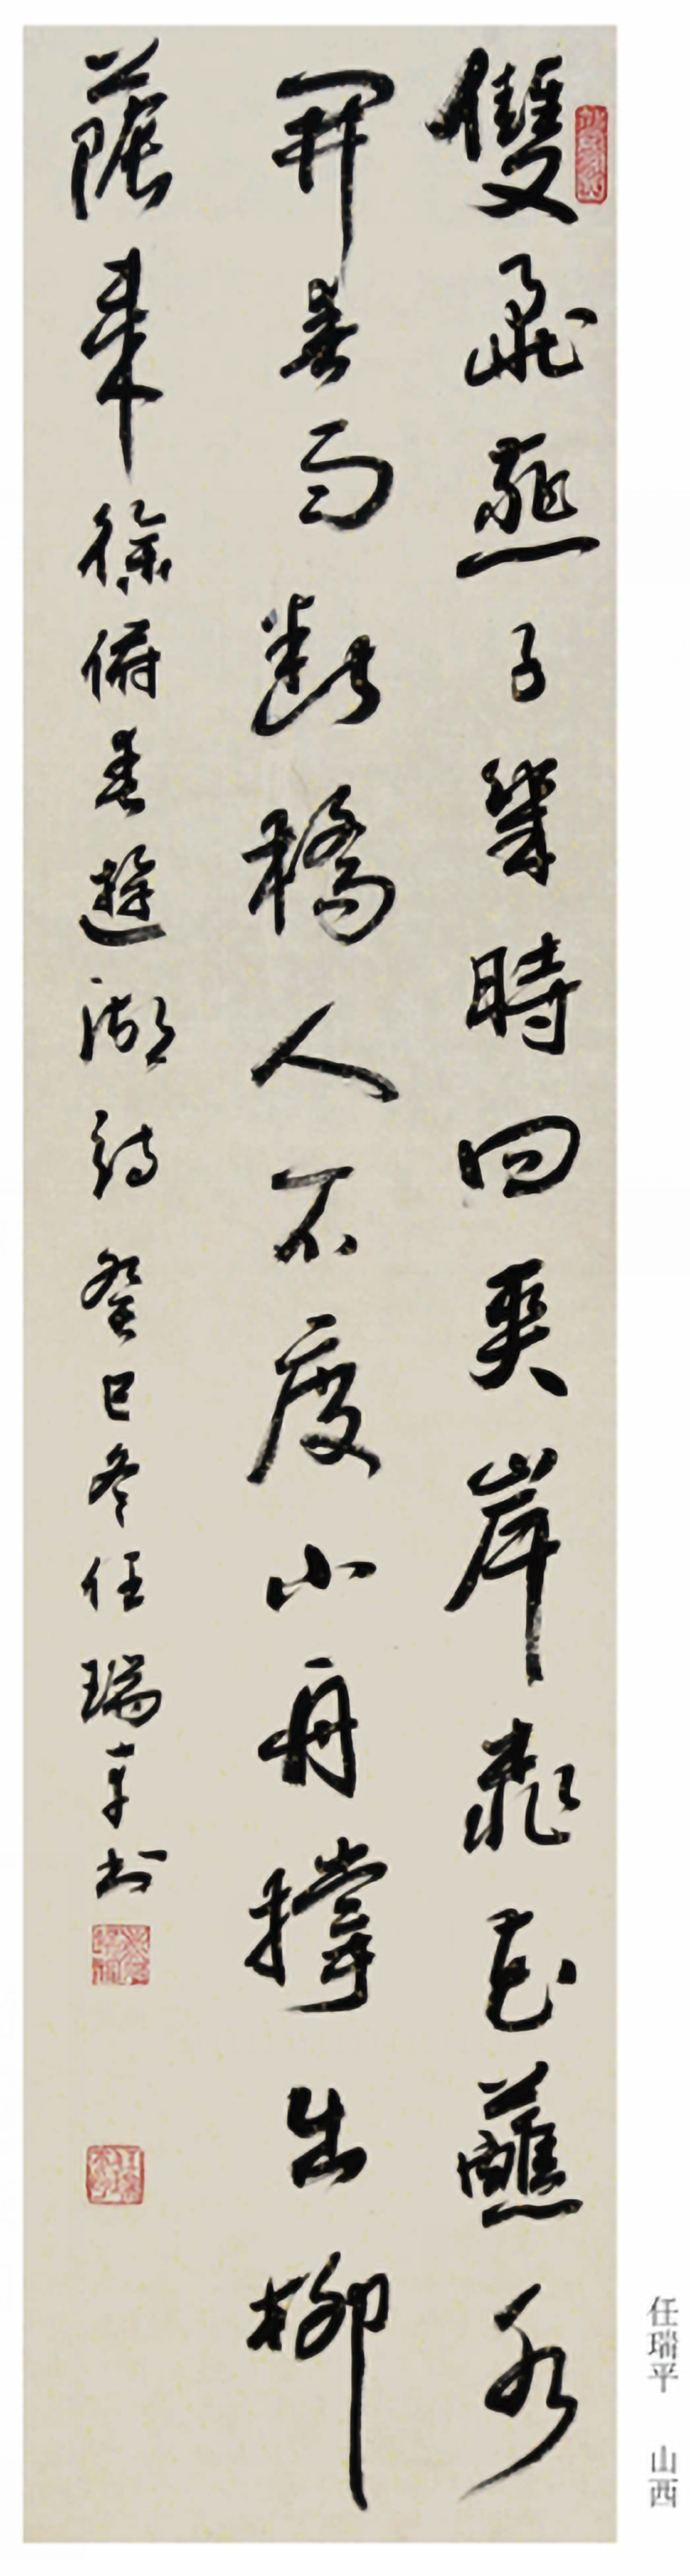 雙飛燕子幾時回夾岸桃花蘸水
開春雨斷橋人不度小舟撐出柳
蔭來徐俯春遊湖詩癸巳冬任瑞平書
任瑞平 山西